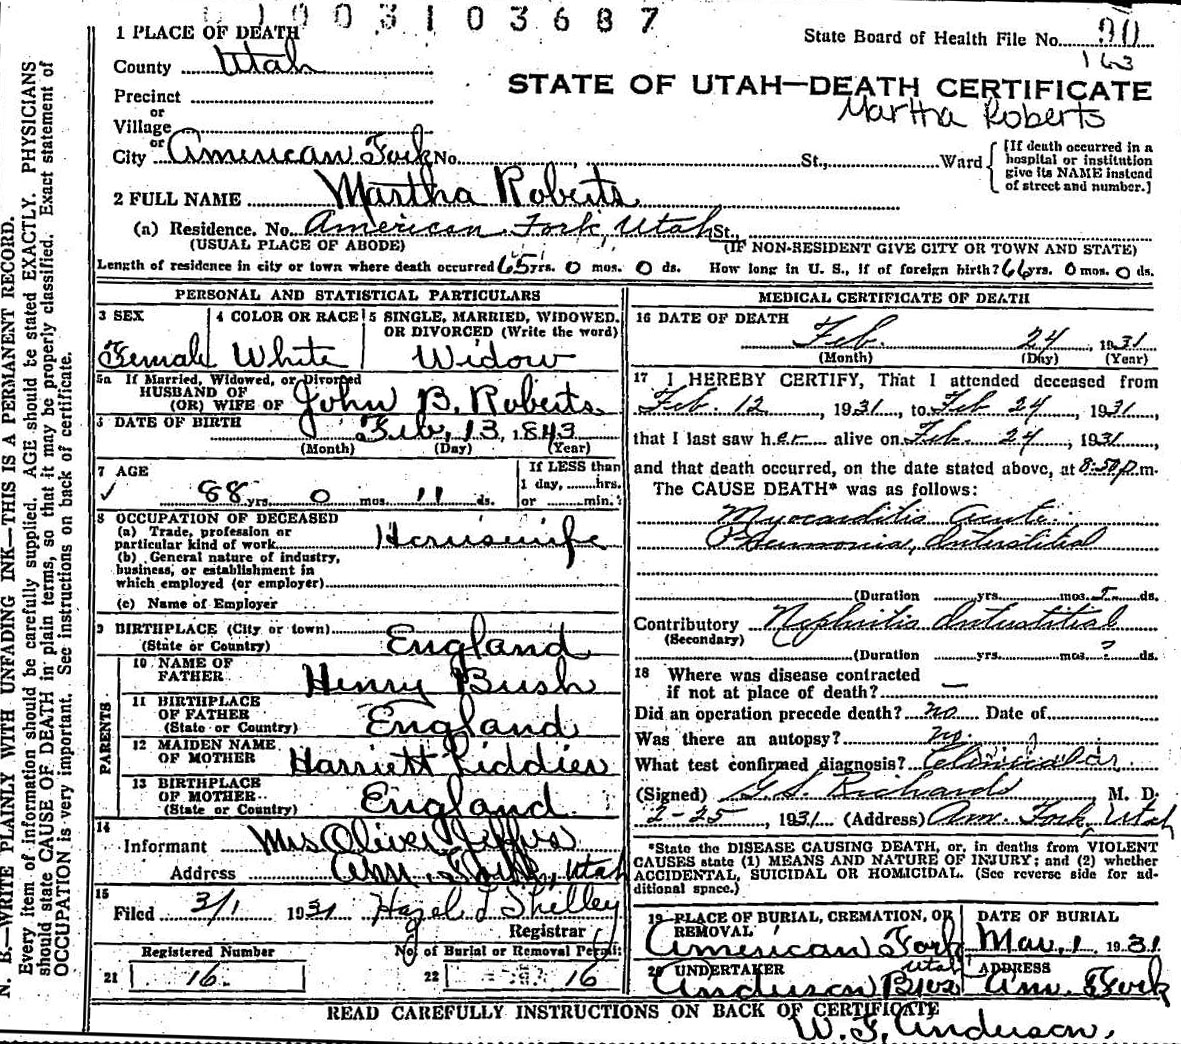 1003103687
1 PLACE OF DEATH
State Board of Health File No. 90
163
County Utah
STATE OF UTAH—DEATH CERTIFICATE
Martha Roberts
Precinct
or
Village
or
City American Fork No. St., Ward
[If death occurred in a
hospital or institution
give its NAME instead
of street and number.]
2 FULL NAME Martha Roberts
(a) Residence. No. American Fork, Utah St.,
(USUAL PLACE OF ABODE) (IF NON-RESIDENT GIVE CITY OR TOWN AND STATE)
Length of residence in city or town where death occurred 65 yrs. 0 mos. 0 ds. How long in U. S., if of foreign birth? 66 yrs. 0 mos. 0 ds.
PERSONAL AND STATISTICAL PARTICULARS
3 SEX
Female
4 COLOR OR RACE
White
5 SINGLE, MARRIED, WIDOWED,
OR DIVORCED (Write the word)
Widow
5a If Married, Widowed, or Divorced
HUSBAND OF
(OR) WIFE OF John B. Roberts
6 DATE OF BIRTH Feb, 13, 1843
(Month) (Day) (Year)
7 AGE
✓ 88 yrs. 0 mos. 11 ds.
If LESS than
1 day, hrs.
or min.
8 OCCUPATION OF DECEASED
(a) Trade, profession or
particular kind of work Housewife
(b) General nature of industry,
business, or establishment in
which employed (or employer)
(c) Name of Employer
9 BIRTHPLACE (City or town)
(State or Country) England
PARENTS
10 NAME OF
FATHER Henry Bush
11 BIRTHPLACE
OF FATHER
(State or Country) England
12 MAIDEN NAME
OF MOTHER Harriett Kiddier
13 BIRTHPLACE
OF MOTHER
(State or Country) England.
14
Informant Mrs Oliver
Address Am. Fork, Utah
15
Filed 3/1 1931 Hazel L Shelley
Registrar
Registered Number No. of Burial or Removal Permit
21 16 22 16
MEDICAL CERTIFICATE OF DEATH
16 DATE OF DEATH
Feb. 24, 1931
(Month) (Day) (Year)
17 I HEREBY CERTIFY, That I attended deceased from
Feb. 12, 1931, to Feb 24, 1931,
that I last saw her alive on Feb. 24, 1931,
and that death occurred, on the date stated above, at 8:50 p.m.
The CAUSE DEATH* was as follows:
Myocarditis Acute.
Pneumonia, Interstitial
(Duration yrs. mos. 5 ds.
Contributory Nephritis Interstitial
(Secondary)
(Duration yrs. mos. ? ds.
18 Where was disease contracted
if not at place of death? —
Did an operation precede death? no Date of
Was there an autopsy? no.
What test confirmed diagnosis?
(Signed) G. S. Richards M. D.
2-25, 1931 (Address) Am. Fork, Utah
*State the DISEASE CAUSING DEATH, or, in deaths from VIOLENT
CAUSES state (1) MEANS AND NATURE OF INJURY; and (2) whether
ACCIDENTAL, SUICIDAL OR HOMICIDAL. (See reverse side for ad-
ditional space.)
19 PLACE OF BURIAL, CREMATION, OR
REMOVAL
American Fork
Utah
DATE OF BURIAL
Mar. 1 1931
20 UNDERTAKER
Anderson Bros
ADDRESS
Am. Fork
READ CAREFULLY INSTRUCTIONS ON BACK OF CERTIFICATE
W. F. Anderson.
N. B.—WRITE PLAINLY WITH UNFADING INK—THIS IS A PERMANENT RECORD.
Every item of information should be carefully supplied. AGE should be stated EXACTLY. PHYSICIANS
should state CAUSE OF DEATH in plain terms, so that it may be properly classified. Exact statement of
OCCUPATION is very important. See instructions on back of certificate.